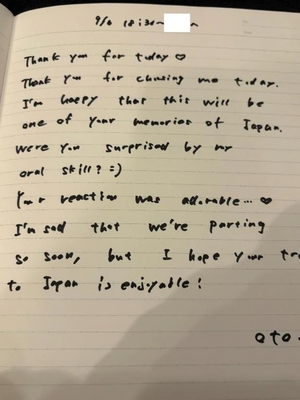 9/6 18:30~
Thank you for today ♡
Thank you for chusing me today.
I'm happy that this will be
one of your memories of Japan.
were you surprised by my
oral skill? =)
Your reaction was adorable... ♡
I'm sad that we're parting
so soon, but I hope your
to Japan is enjoyable!